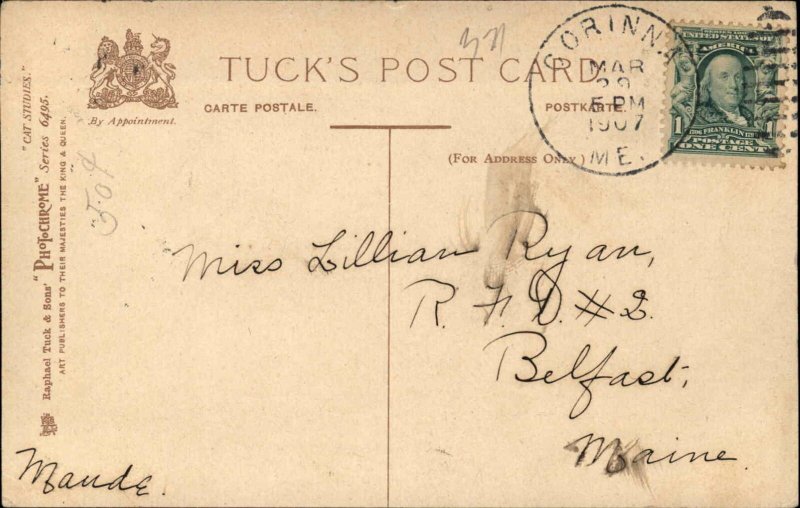 TUCK'S POST CARD
CARTE POSTALE.
POSTKARTE.
(FOR ADDRESS ONLY)
By Appointment.
"CAT STUDIES."
Raphael Tuck & Sons' "PHOTOCHROME" Series 6495.
ART PUBLISHERS TO THEIR MAJESTIES THE KING & QUEEN.
CORINNA
MAR
29
5 PM
1907
ME.
SERIES 1902
UNITED STATES OF
AMERICA
FRANKLIN
1 POSTAGE
ONE CENT
Miss Lillian Ryan,
R. F. D. #2.
Belfast,
Maine.
Maude.